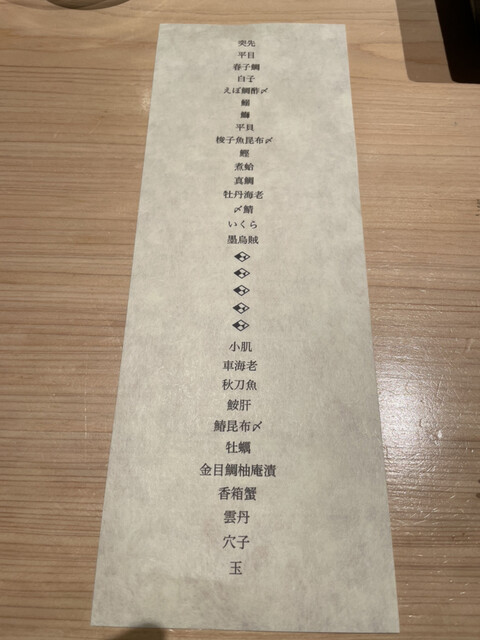 突先
平目
春子鯛
白子
えぼ鯛酢〆
鰯
鰤
平貝
梭子魚昆布〆
鰹
煮蛤
真鯛
牡丹海老
〆鯖
いくら
墨烏賊
小肌
車海老
秋刀魚
鮟肝
鰆昆布〆
牡蠣
金目鯛柚庵漬
香箱蟹
雲丹
穴子
玉